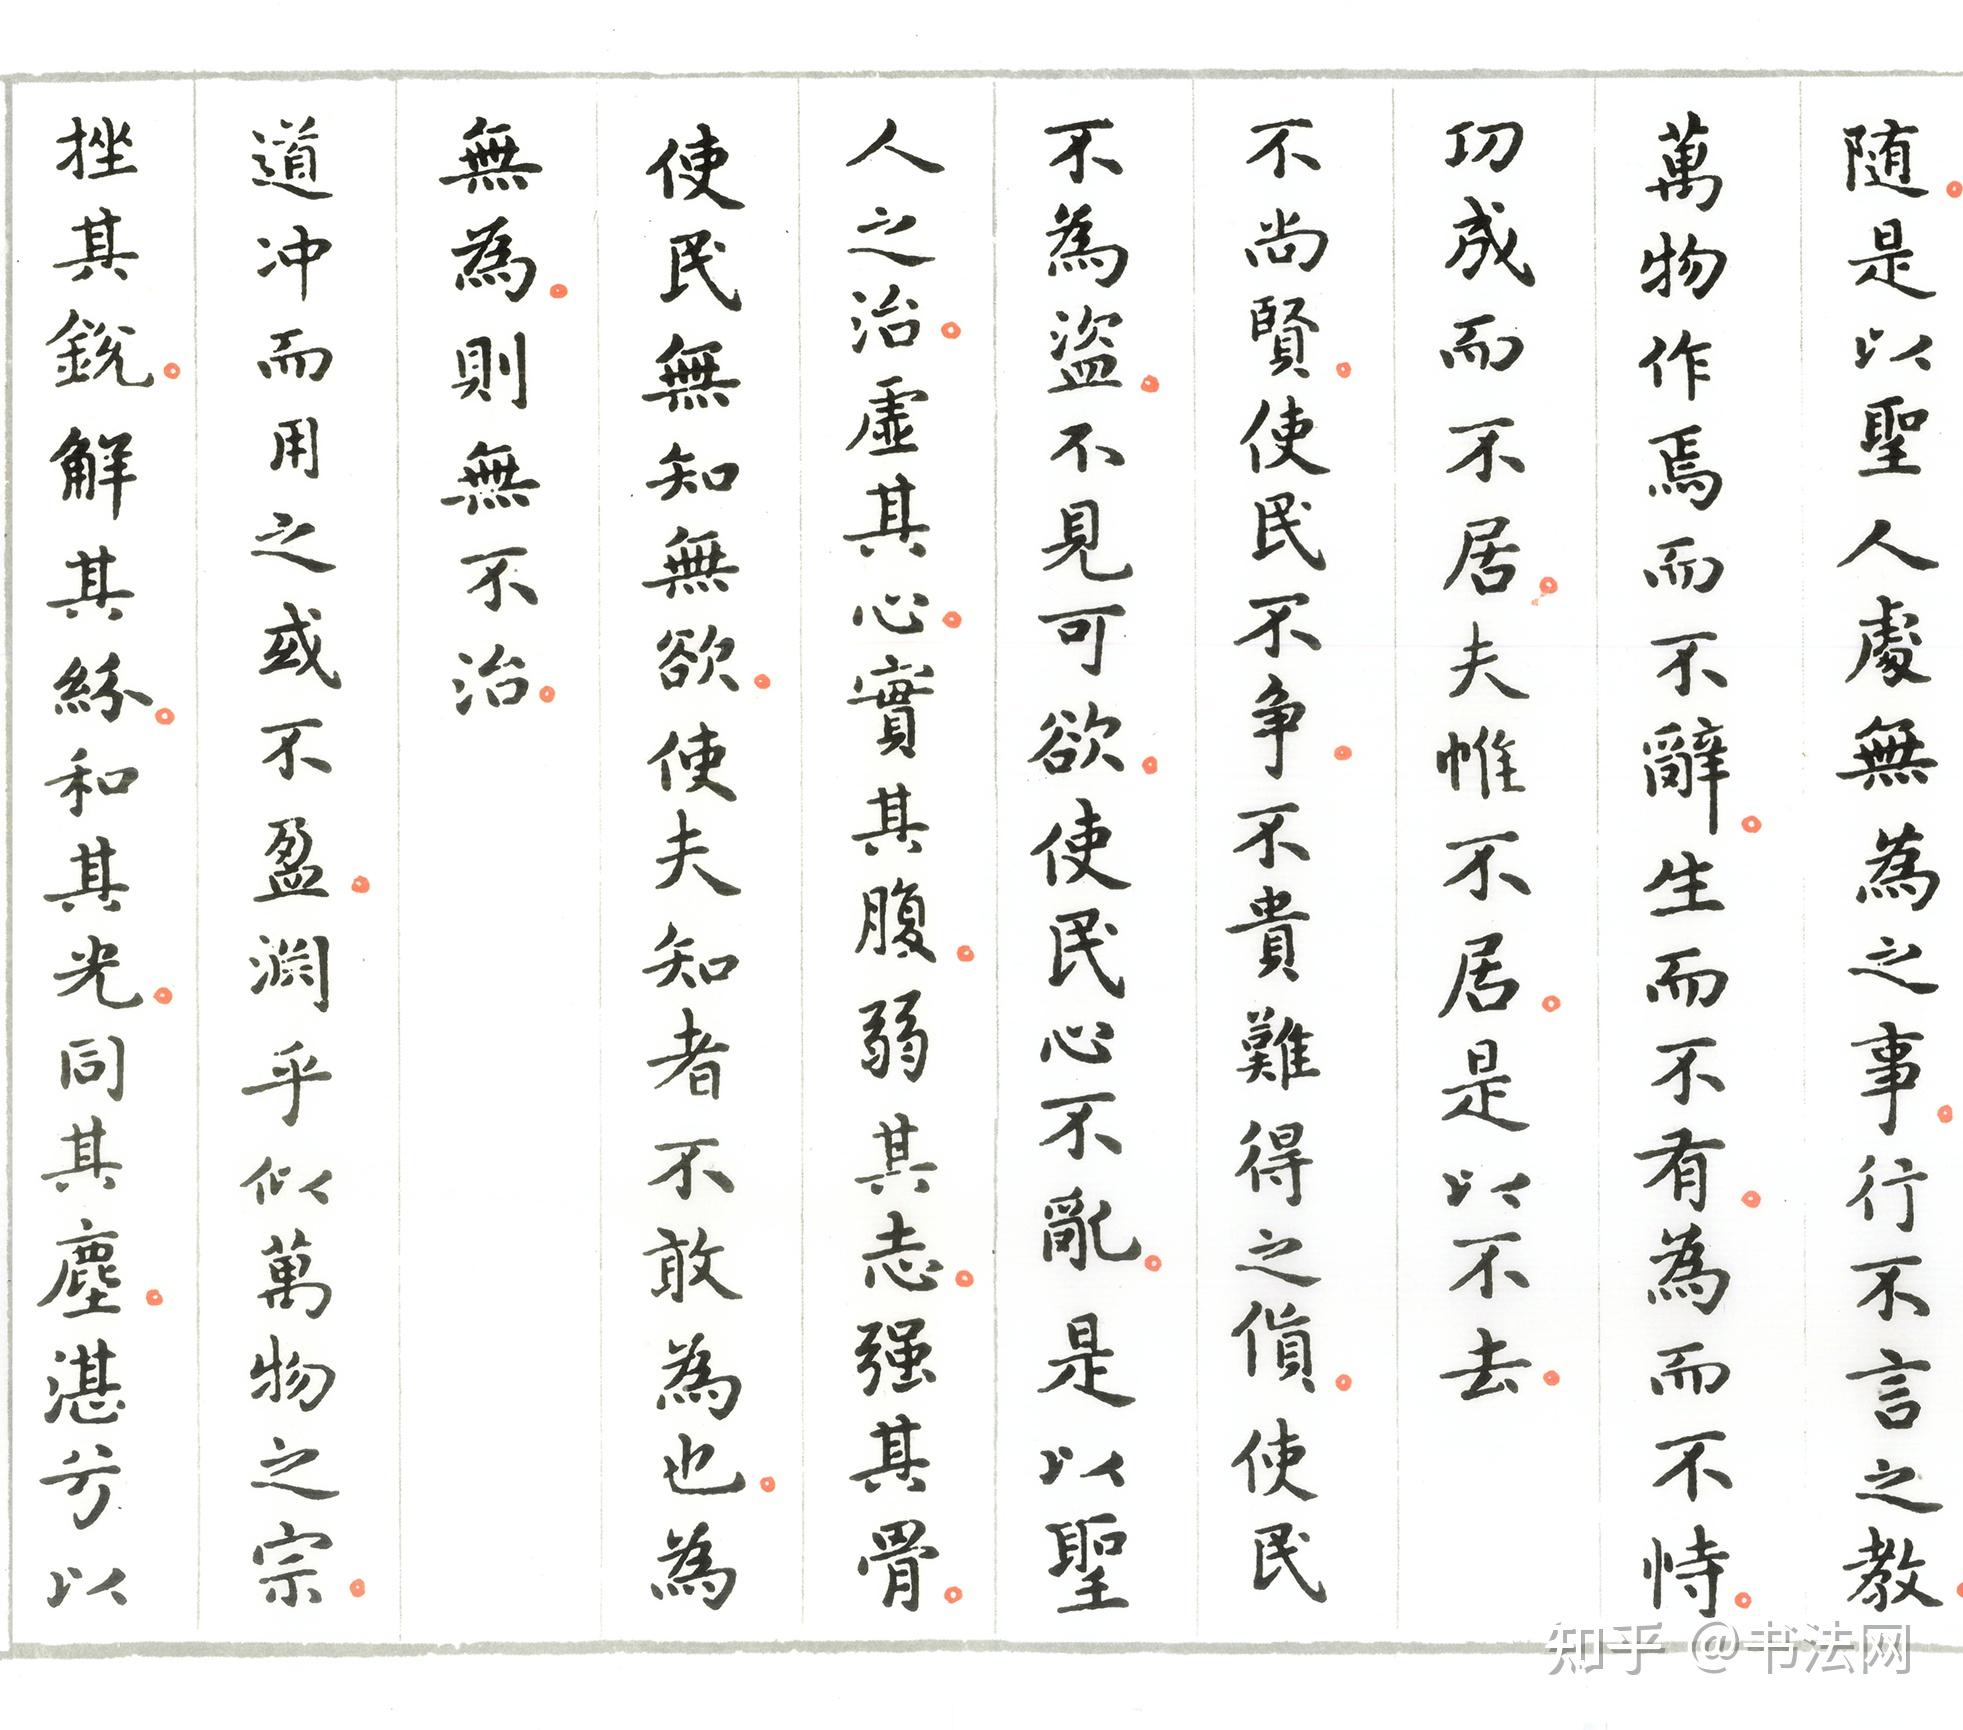 随。是以聖人處無為之事。行不言之教。
萬物作焉而不辭。生而不有。為而不恃。
功成而不居。夫惟不居。是以不去。
不尚賢。使民不争。不貴難得之貨。使民
不為盜。不見可欲。使民心不亂。是以聖
人之治。虛其心。實其腹。弱其志。强其骨。
使民無知無欲。使夫知者不敢為也。為
無為。則無不治。
道冲而用之或不盈。淵乎似萬物之宗。
挫其銳。解其紛。和其光。同其塵。湛兮以
知乎 @书法网